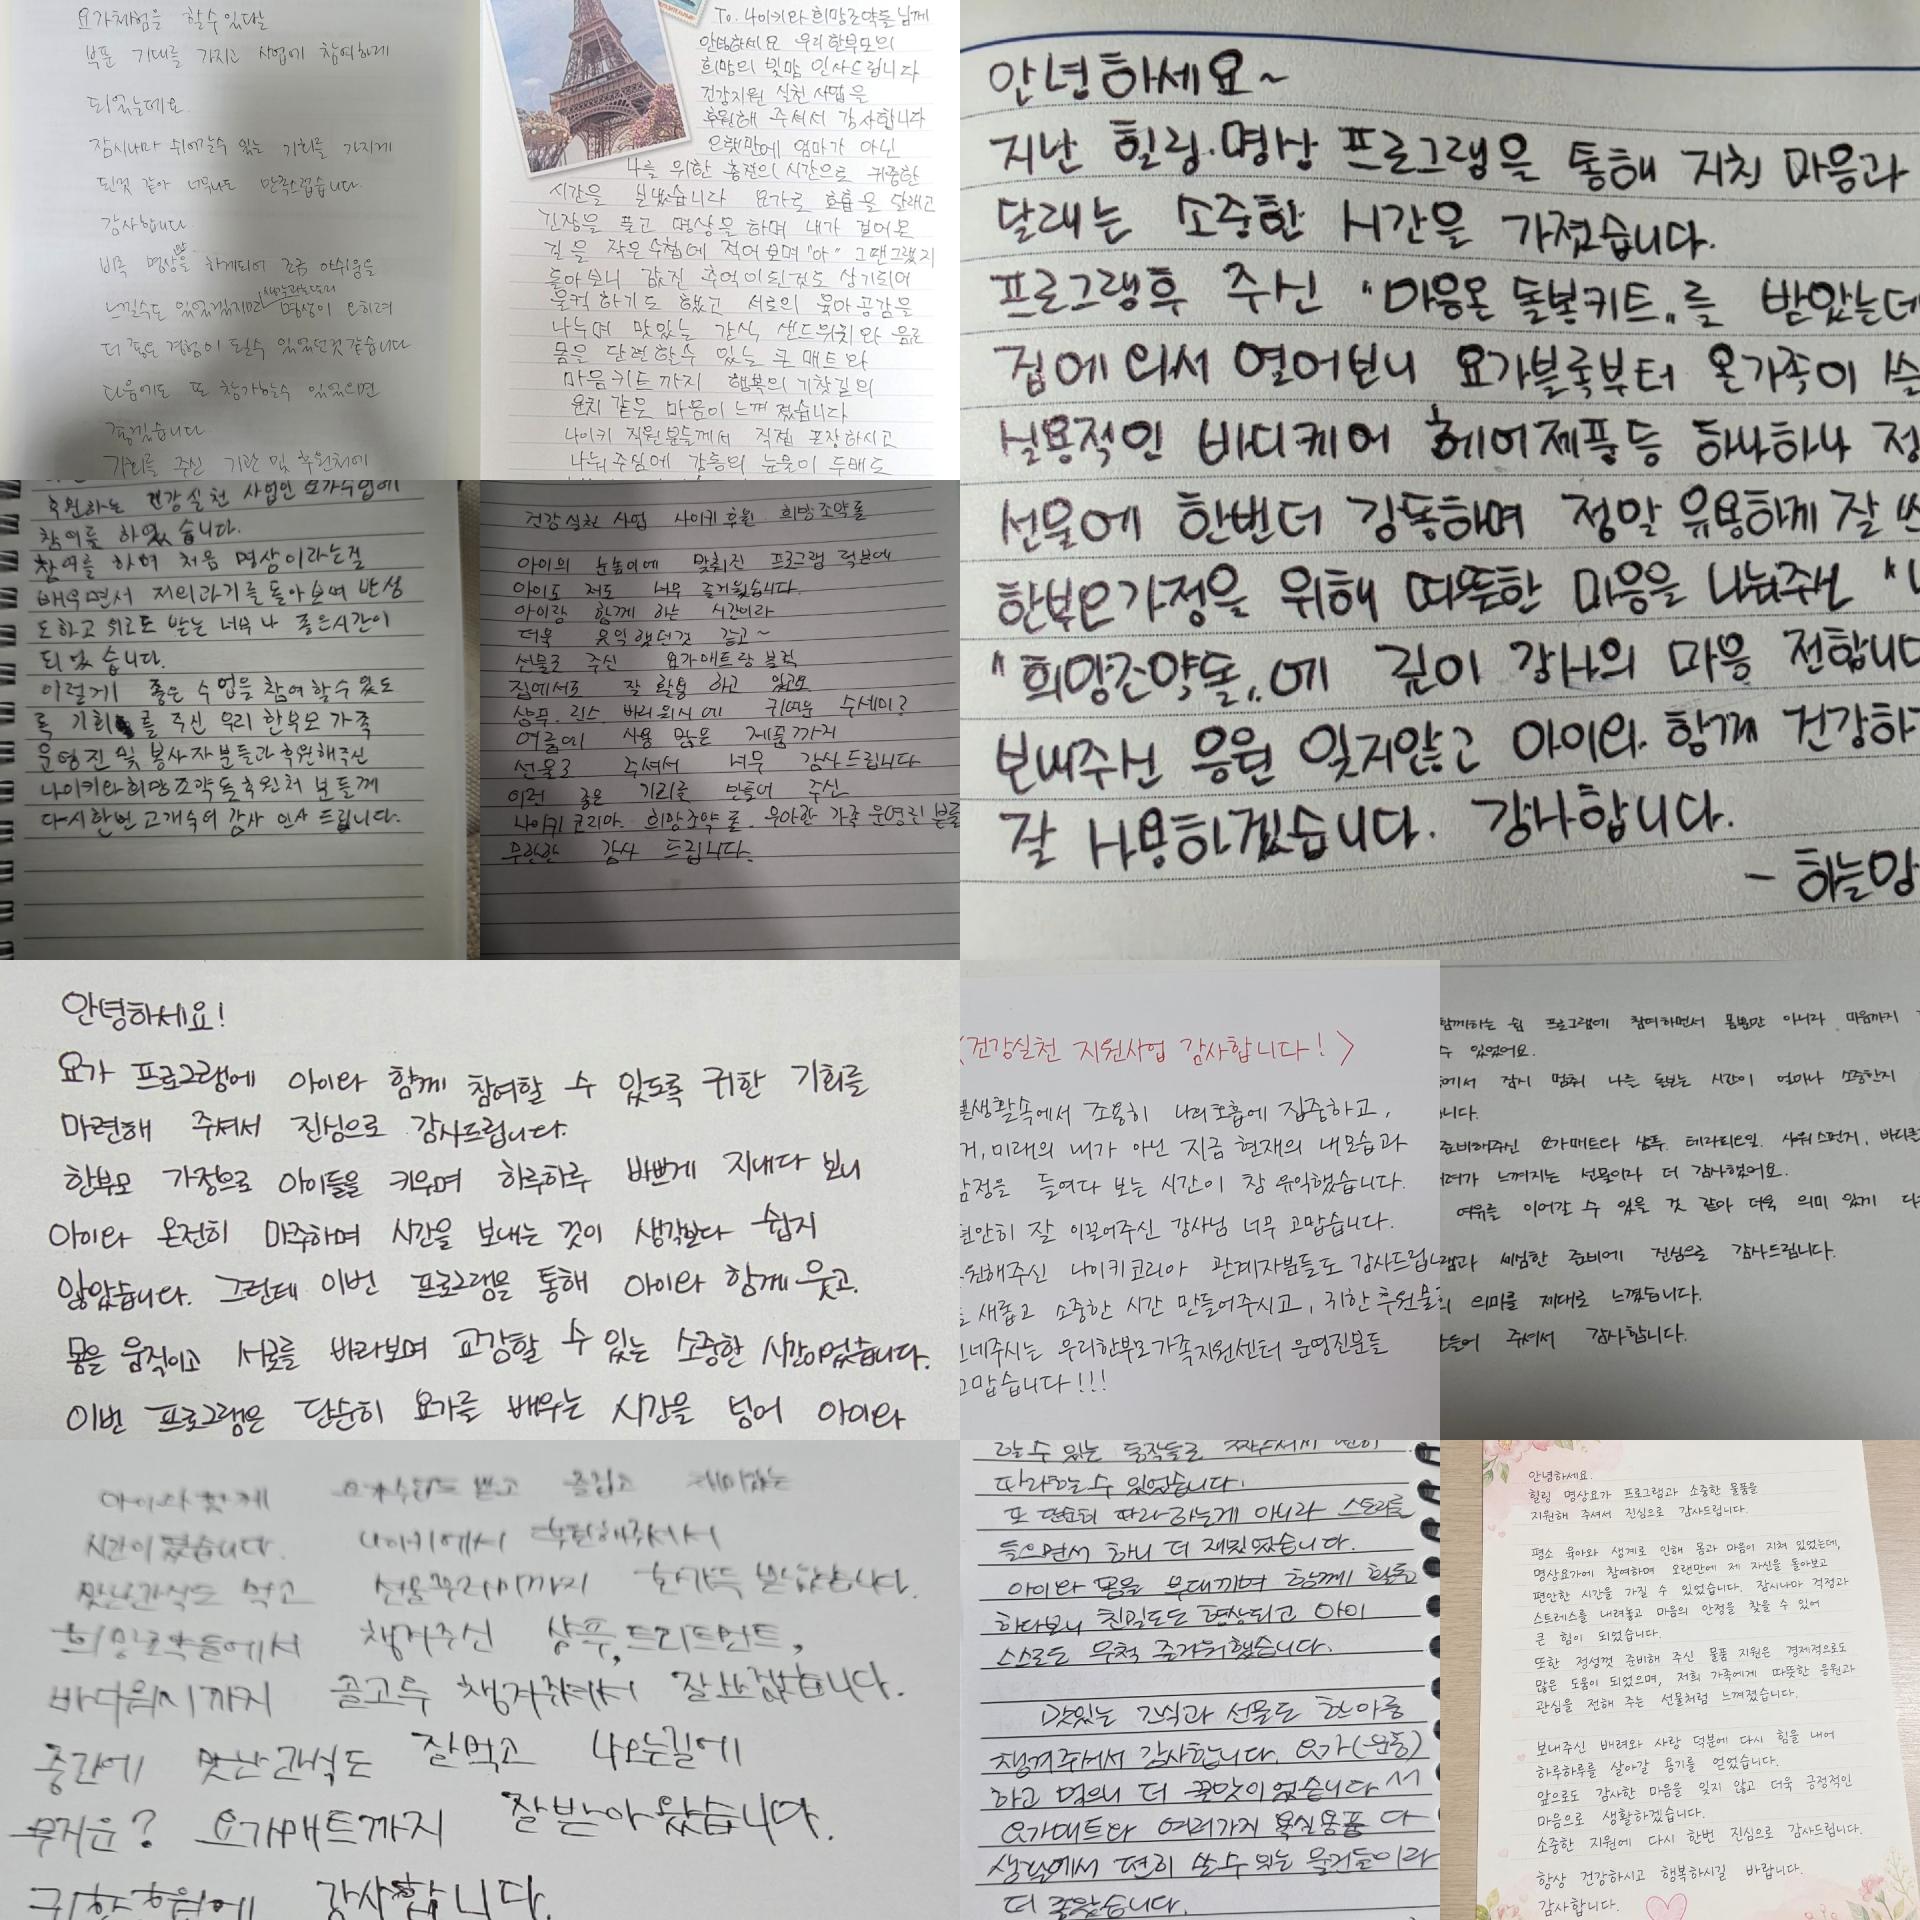 요가체험을 할수있다는
부푼 기대를 가지고 사업에 참여하게
되었는데요
잠시나마 쉬어갈수 있는 기회를 가지게
된것 같아 너무나도 만족스럽습니다.
감사합니다
비록 명상을 하게되어 조금 아쉬움을
느낄수도 있었겠지만 명상이 오히려
더 좋은 경험이 될수 있었던것 같습니다
다음에도 또 참가할수 있었으면
좋겠습니다
기회를 주신 기관 및 후원처에
To. 나이키와 희망조약돌님께
안녕하세요 우리한부모의
희망의 빛맘 인사드립니다
건강지원 실천사업을
후원해 주셔서 감사합니다
오랫만에 엄마가 아닌
나를 위한 충전의 시간으로 귀중한
시간을 보냈습니다 요가로 호흡을 달래고
긴장을 풀고 명상을 하며 내가 걸어온
길을 작은수첩에 적어보며 "아" 그땐그랬지
돌아보니 값진 추억이된것도 상기되어
울컥하기도 했고 서로의 육아공감을
나누며 맛있는 간식 샌드위치와 음료
몸을 단련할수 있는 큰 매트와
마음키트까지 행복의 기찻길의
운치 같은 마음이 느껴졌습니다
나이키 직원분들께서 직접 포장하시고
나눠주심에 감동의 눈물이 두배로
안녕하세요~
지난 힐링.명상 프로그램을 통해 지친 마음과
달래는 소중한 시간을 가졌습니다.
프로그램후 주신 "마음온 돌봄키트"를 받았는데
집에와서 열어보니 요가블록부터 온가족이 쓸
실용적인 바디케어 헤어제품등 하나하나 정
선물에 한번더 감동하며 정말 유용하게 잘 쓰
한부모가정을 위해 따뜻한 마음을 나눠주신 "나
"희망조약돌"에 깊이 감사의 마음 전합니다
보내주신 응원 잊지않고 아이와 함께 건강하
잘 사용하겠습니다. 감사합니다.
- 하늘맘
후원하는 건강실천 사업인 요가수업에
참여를 하였습니다.
참여를 하며 처음 명상이라는걸
배우면서 저의과거를 돌아보며 반성
도하고 위로도 받는 너무나 좋은시간이
되었습니다.
이렇게 좋은 수업을 참여할수 있도
록 기회를 주신 우리 한부모가족
운영진 및 봉사자분들과 후원해주신
나이키와희망조약돌후원처 분들께
다시한번 고개숙여 감사 인사 드립니다.
건강실천 사업 나이키후원 희망조약돌
아이의 눈높이에 맞춰진 프로그램 덕분에
아이도 저도 너무 즐거웠습니다.
아이랑 함께 하는 시간이라
더욱 유익했던것 같고~
선물로 주신 요가매트랑 블럭
집에서도 잘 활용 하고 있고요
샴푸. 린스. 바디워시에 귀여운 수세미?
여름에 사용 많은 제품까지
선물로 주셔서 너무 감사드립니다
이런 좋은 기회를 만들어 주신
나이키코리아. 희망조약돌. 우아한 가족 운영진 분들
무한한 감사 드립니다.
안녕하세요!
요가 프로그램에 아이와 함께 참여할 수 있도록 귀한 기회를
마련해 주셔서 진심으로 감사드립니다.
한부모 가정으로 아이들을 키우며 하루하루 바쁘게 지내다 보니
아이와 온전히 마주하며 시간을 보내는 것이 생각보다 쉽지
않았습니다. 그런데 이번 프로그램을 통해 아이와 함께 웃고.
몸을 움직이고 서로를 바라보며 교감할 수 있는 소중한 시간이었습니다.
이번 프로그램은 단순히 요가를 배우는 시간을 넘어 아이와
<건강실천 지원사업 감사합니다!>
생활속에서 조용히 나의호흡에 집중하고,
거, 미래의 내가 아닌 지금 현재의 내모습과
감정을 들여다 보는 시간이 참 유익했습니다.
편안히 잘 이끌어주신 강사님 너무 고맙습니다.
후원해주신 나이키코리아 관계자분들도 감사드립니
새롭고 소중한 시간 만들어주시고, 귀한 후원물
건네주시는 우리한부모가족지원센터 운영진분들
고맙습니다!!!
함께하는 쉼 프로그램에 참여하면서 몸뿐만 아니라 마음까지
수 있었어요.
에서 잠시 멈춰 나를 돌보는 시간이 얼마나 소중한지
니다.
준비해주신 요가매트와 샴푸. 테라피오일. 샤워스펀지, 바디
배려가 느껴지는 선물이라 더 감사했어요.
여유를 이어갈 수 있을 것 같아 더욱 의미 있게
램과 세심한 준비에 진심으로 감사드립니다.
의 의미를 제대로 느꼈습니다.
만들어 주셔서 감사합니다.
아이와 함께 요가수업도 받고 즐겁고 재미있는
시간이 됐습니다. 나이키에서 후원해주셔서
맛난간식도 먹고 선물꾸러미까지 한가득 받았습니다.
희망조약돌에서 챙겨주신 샴푸,트리트먼트,
바디워시까지 골고루 챙겨주셔서 잘쓰겠습니다.
중간에 맛난간식도 잘먹고 나오는길에
무거운? 요가매트까지 잘받아왔습니다.
귀한후원에 감사합니다.
할수 있는 동작들로 짜주셔서 편히
따라하는수 있었습니다.
또 단순히 따라하는게 아니라 스토리를
들으면서 하니 더 재밌었습니다.
아이와 몸을 부대끼며 함께 활동
하다보니 친밀도도 형상되고 아이
스스로도 무척 즐거워했습니다.
맛있는 간식과 선물도 한아름
챙겨주셔서 감사합니다. 요가(운동)
하고 먹으니 더 꿀맛이었습니다^^
요가매트와 여러가지 욕실용품 다
생활에서 편히 쓸수 있는 물건들이라
더 좋았습니다.
안녕하세요.
힐링 명상요가 프로그램과 소중한 물품을
지원해 주셔서 진심으로 감사드립니다.
평소 육아와 생계로 인해 몸과 마음이 지쳐 있었는데,
명상요가에 참여하며 오랜만에 제 자신을 돌아보고
편안한 시간을 가질 수 있었습니다. 잠시나마 걱정과
스트레스를 내려놓고 마음의 안정을 찾을 수 있어
큰 힘이 되었습니다.
또한 정성껏 준비해 주신 물품 지원은 경제적으로도
많은 도움이 되었으며, 저희 가족에게 따뜻한 응원과
관심을 전해 주는 선물처럼 느껴졌습니다.
보내주신 배려와 사랑 덕분에 다시 힘을 내어
하루하루를 살아갈 용기를 얻었습니다.
앞으로도 감사한 마음을 잊지 않고 더욱 긍정적인
마음으로 생활하겠습니다.
소중한 지원에 다시 한번 진심으로 감사드립니다.
항상 건강하시고 행복하시길 바랍니다.
감사합니다.